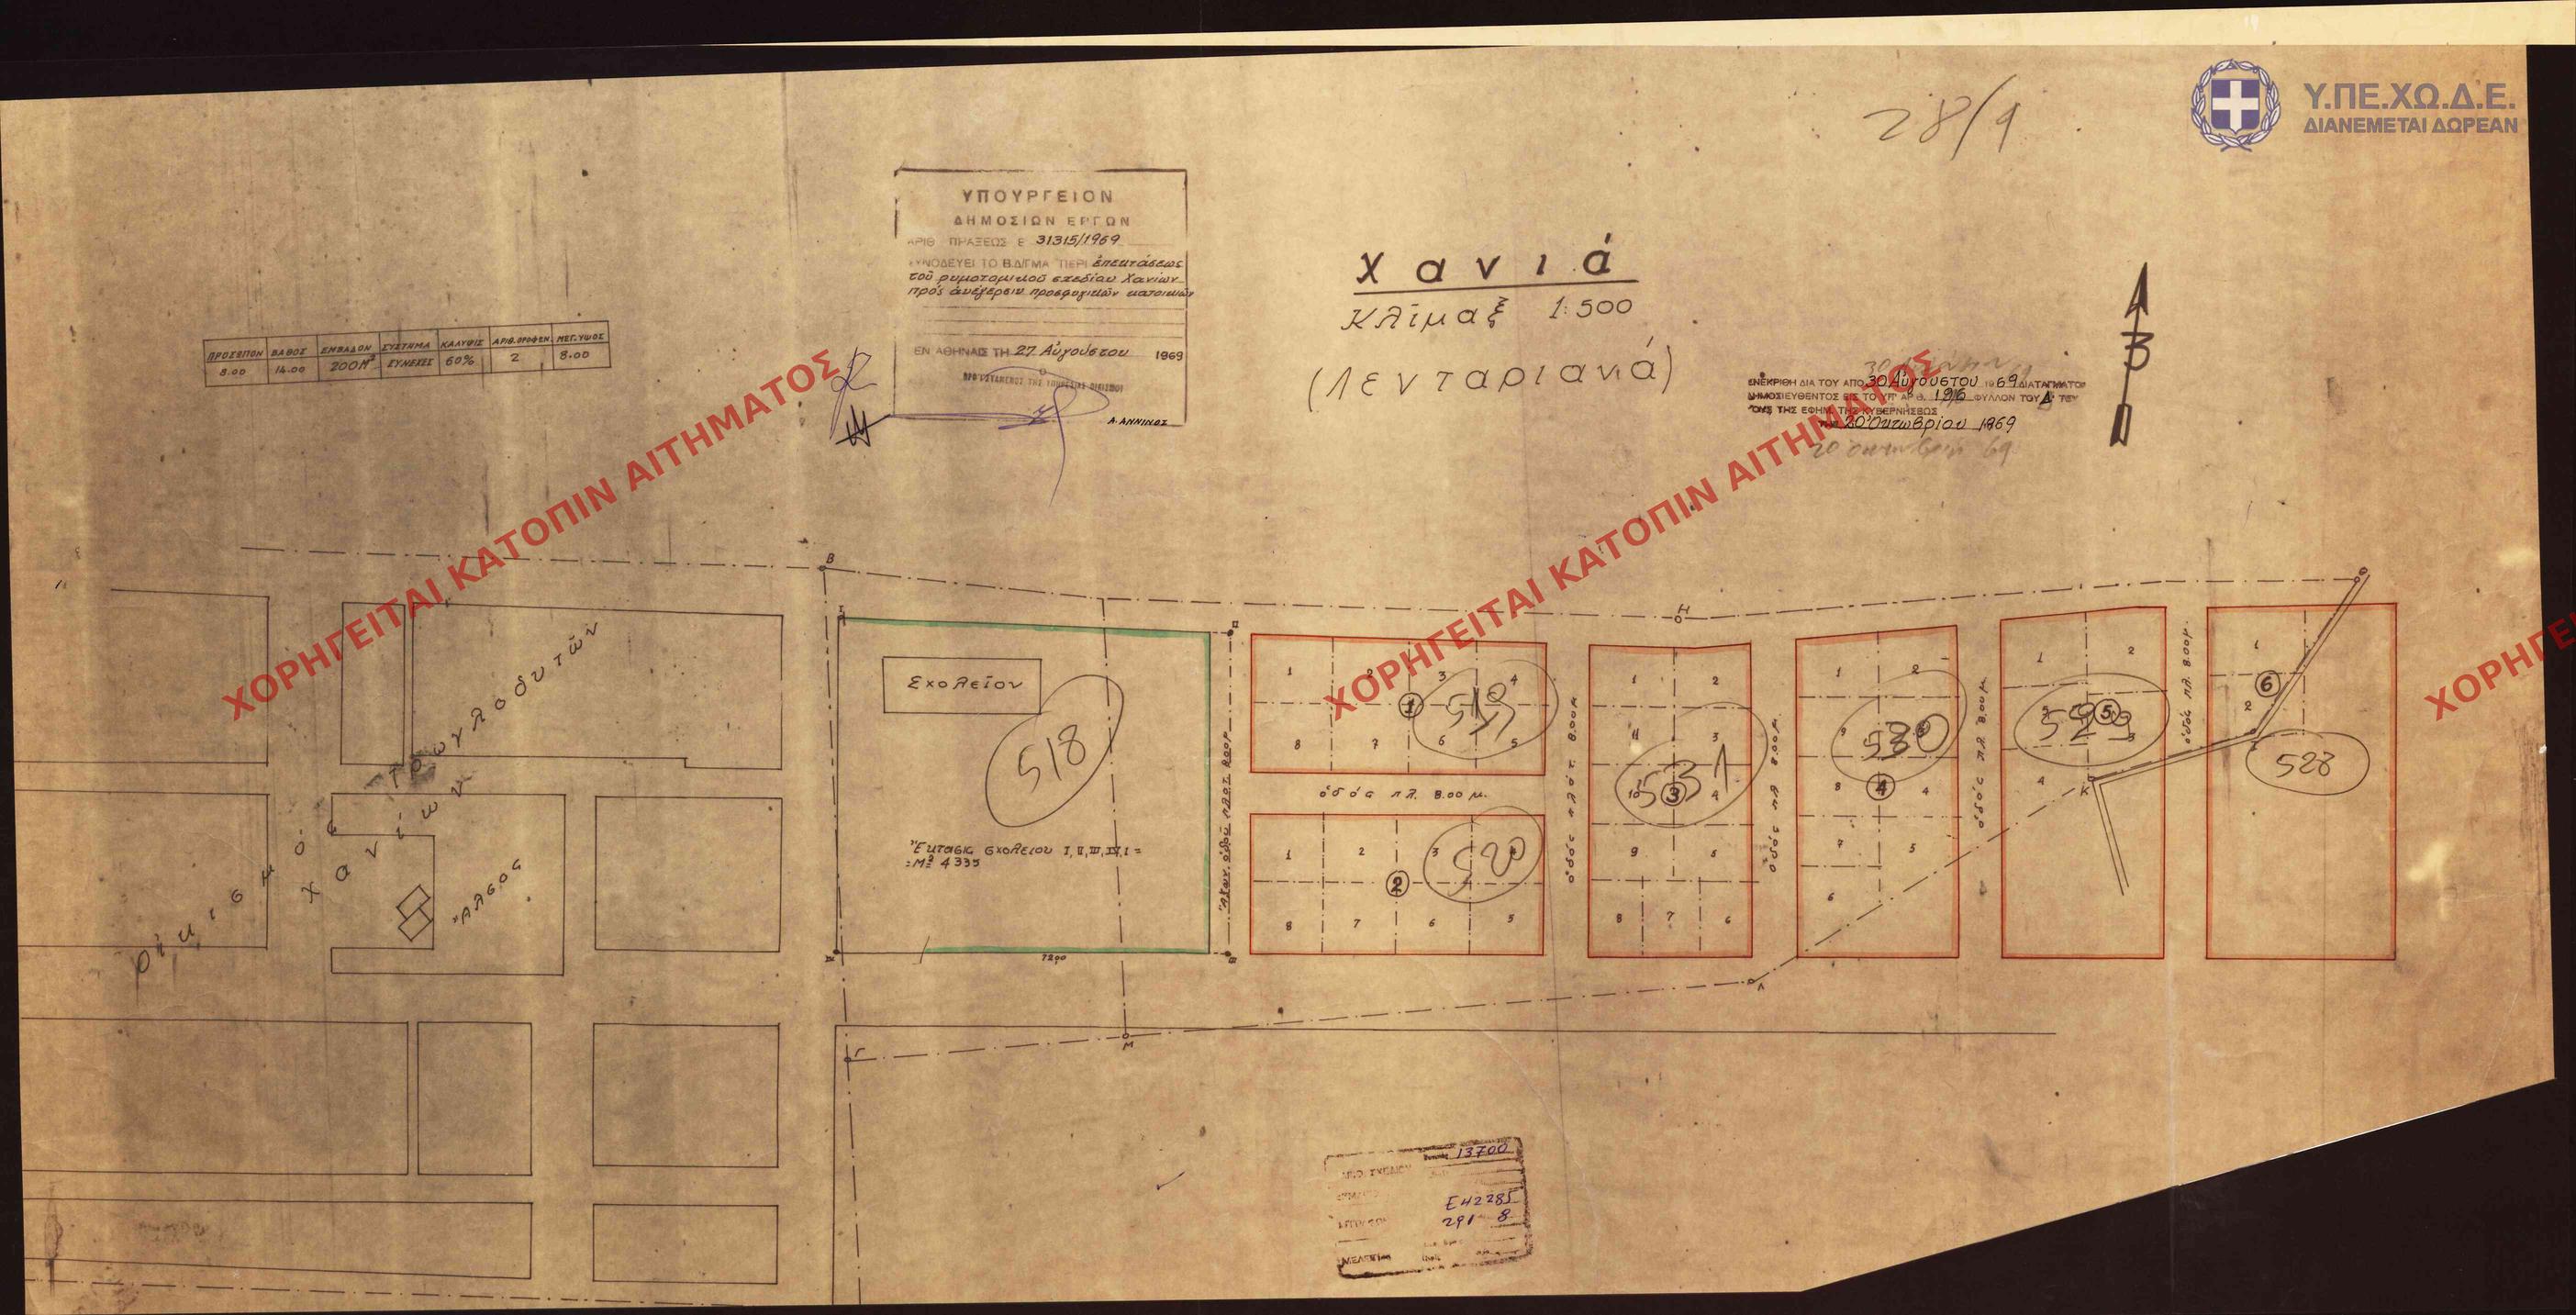 Υ.ΠΕ.ΧΩ.Δ.Ε.
ΔΙΑΝΕΜΕΤΑΙ ΔΩΡΕΑΝ
28/9
ΥΠΟΥΡΓΕΙΟΝ
ΔΗΜΟΣΙΩΝ ΕΡΓΩΝ
ΑΡΙΘ ΠΡΑΞΕΩΣ Ε 31315/1969
ΣΥΝΟΔΕΥΕΙ ΤΟ Β.Δ/ΓΜΑ "ΠΕΡΙ ἐπεκτάσεως
τοῦ ρυμοτομικοῦ σχεδίου Χανίων
πρός ἀνέγερσιν προσφυγικῶν κατοικιῶν
ΕΝ ΑΘΗΝΑΙΣ ΤΗ 27 Αὐγούστου 1969
Ο
Α. ΑΝΝΙΝΟΣ
Χανιά
Κλῖμαξ 1:500
(Λενταριανά)
ΕΝΕΚΡΙΘΗ ΔΙΑ ΤΟΥ ΑΠΟ 30 Αὐγούστου 1969 ΔΙΑΤΑΓΜΑΤΟΣ
ΔΗΜΟΣΙΕΥΘΕΝΤΟΣ ΕΙΣ ΤΟ ΥΠ' ΑΡΙΘ. 196 ΦΥΛΛΟΝ ΤΟΥ Δ' ΤΕΥ
ΧΟΥΣ ΤΗΣ ΕΦΗΜ. ΤΗΣ ΚΥΒΕΡΝΗΣΕΩΣ
20 Ὀκτωβρίου 1969
Β
ΠΡΟΣΩΠΟΝ ΒΑΘΟΣ ΕΜΒΑΔΟΝ ΣΥΣΤΗΜΑ ΚΑΛΥΨΙΣ ΑΡΙΘ.ΟΡΟΦΩΝ ΜΕΓ.ΥΨΟΣ
8.00 14.00 200Μ² ΣΥΝΕΧΕΣ 60% 2 8.00
ΧΟΡΗΓΕΙΤΑΙ ΚΑΤΟΠΙΝ ΑΙΤΗΜΑΤΟΣ
ΧΟΡΗΓΕΙΤΑΙ ΚΑΤΟΠΙΝ ΑΙΤΗΜΑΤΟΣ
ΧΟΡΗΓΕΙ
Β
Η
Θ
Ι
ΙΙ
Σχολεῖον
518
Ἔκτασις σχολείου Ι, ΙΙ, ΙΙΙ, ΙV, Ι =
=Μ² 4335
72,00
ΙV
ΙΙΙ
Οἰκισμός Τρωγλοδυτῶν
Χανίων
Ἄλσος
1 2 3 4
1 519
8 7 6 5
ὁδός πλ. 8.00 μ.
1 2 3
2 520
8 7 6 5
ὁδός πλάτ. 8.00μ
1 2
11 3
10 3 4
531
9 5
8 7 6
ὁδός πλ 8.00μ.
1 2
9
530
8 4 4
7 5
6
ὁδός πλ. 8.00μ
1 2
5
529
4
Κ
ὁδός πλ. 8.00μ.
1
6
2
528
Λ
Μ
Γ
13700
Ε42285
291 8